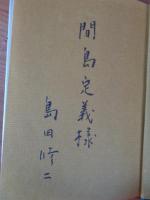 間島定義様
島田修二